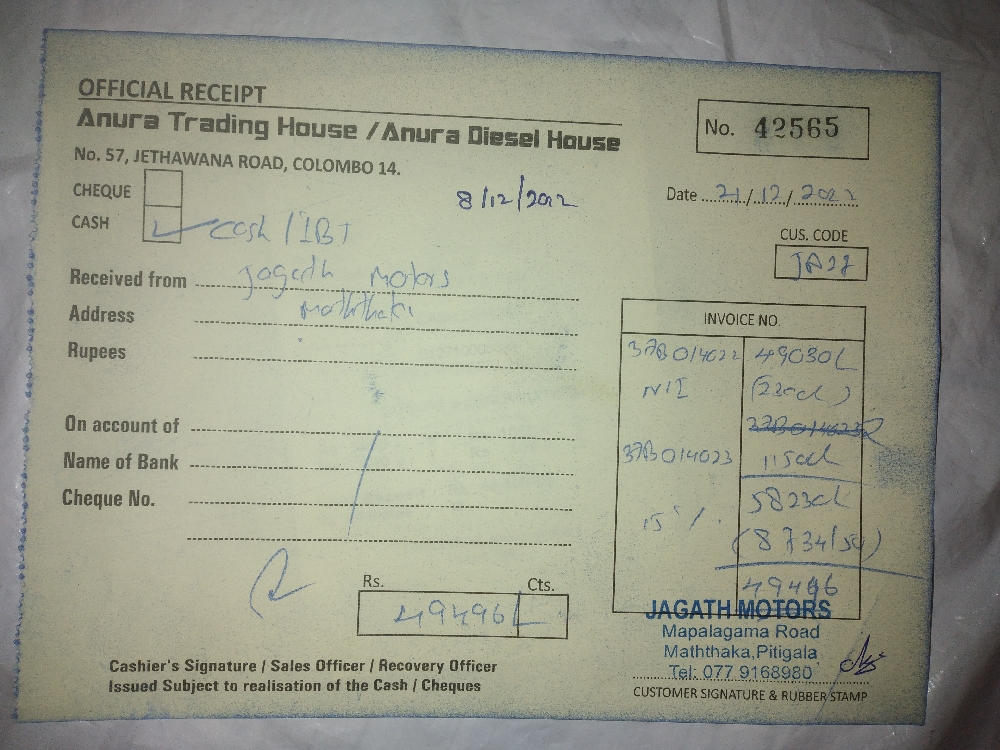 OFFICIAL RECEIPT
Anura Trading House / Anura Diesel House
No. 57, JETHAWANA ROAD, COLOMBO 14.
No. 42565
CHEQUE
8/12/2022
Date 21/12/2022
CASH Cash / IBT
CUS. CODE
Received from Jagath Motors
Address
Rupees
INVOICE NO.
37B014022 49030/
37B014023
On account of
Name of Bank
Cheque No.
15%
(8734/50)
49496
Rs. Cts.
49496/
JAGATH MOTORS
Mapalagama Road
Maththaka,Pitigala
Tel: 077 9168980
Cashier's Signature / Sales Officer / Recovery Officer
Issued Subject to realisation of the Cash / Cheques
CUSTOMER SIGNATURE & RUBBER STAMP